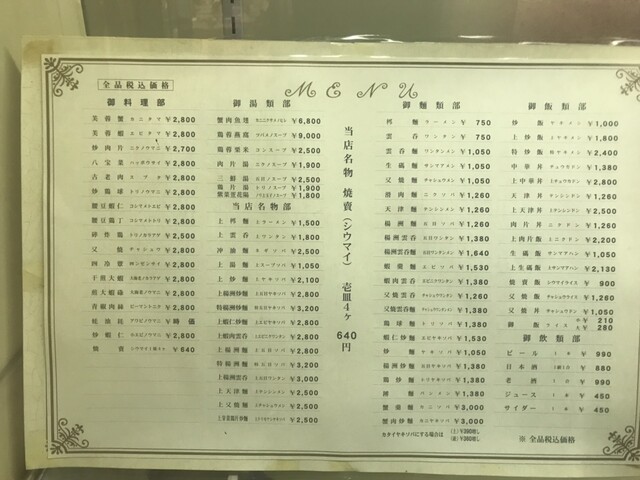 MENU
全品税込価格
御料理部
芙蓉蟹 カニタマ ¥2,800
芙蓉蝦 エビタマ ¥2,800
炒肉片 ニクノウマニ ¥2,700
八宝菜 ハッポウサイ ¥2,800
古老肉 スブタ ¥2,800
炒鶏球 トリノウマニ ¥2,800
腰豆蝦仁 ¥2,800
腰豆鶏丁 ¥2,800
炸鶏 ¥2,800
叉焼 チャシュウ ¥2,800
四冷葷 ¥2,800
干煎大蝦 ¥2,800
煎大蝦 ¥2,800
青椒肉絲 ¥2,800
時価
炒蝦仁 ¥2,800
焼賣 ¥640
御湯類部
蟹肉魚翅 ¥6,800
鶏蓉燕窩 ¥9,000
鶏蓉粟米 コンスープ ¥2,500
肉片湯 ニクノスープ ¥1,900
三鮮湯 ¥2,500
鶏片湯 トリノスープ ¥1,900
紫菜蛋花湯 ¥1,800
当店名物部
上邦麺 上ラーメン ¥1,500
上雲呑 上ワンタン ¥1,800
冲油麺 ネギソバ ¥2,500
上湯麺 上スープソバ ¥1,050
上炒麺 上ヤキソバ ¥2,100
上楊洲炒麺 ¥2,800
特楊洲炒麺 ¥3,200
上蝦仁炒麺 ¥2,800
上蝦肉雲呑 ¥2,800
上楊洲麺 ¥2,800
特楊洲麺 ¥3,200
上楊洲雲呑 ¥3,000
上天津麺 ¥2,500
上叉焼麺 ¥2,500
¥2,500
当店名物 焼賣(シウマイ) 壱皿4ヶ 640円
御麺類部
邦麺 ラーメン ¥750
雲呑 ワンタン ¥750
雲呑麺 ワンタンメン ¥1,050
生碼麺 サンマアメン ¥1,050
叉焼麺 チャシュウメン ¥1,050
滑肉麺 ニクソバ ¥1,260
天津麺 テンシンメン ¥1,260
楊洲麺 五目ソバ ¥1,260
楊洲雲呑 五目ワンタン ¥1,380
楊洲雲呑麺 五目ワンタンメン ¥1,640
蝦蓉麺 エビソバ ¥1,530
蝦肉雲呑 エビワンタン ¥1,380
叉焼雲呑 チャシュウワンタン ¥1,260
叉焼雲呑麺 ¥1,380
鶏球麺 トリソバ ¥1,380
蝦仁炒麺 エビヤキソバ ¥1,530
炒麺 ヤキソバ ¥1,050
楊洲炒麺 五目ヤキソバ ¥1,380
鶏炒麺 トリヤキソバ ¥1,380
拌麺 バンメン ¥1,380
蟹蓉麺 カニソバ ¥3,000
蟹肉炒麺 カニヤキソバ ¥3,000
カタイヤキソバにする場合は (上)¥390増し (並)¥380増し
御飯類部
炒飯 ヤキメシ ¥1,000
上炒飯 上ヤキメシ ¥1,800
特炒飯 特ヤキメシ ¥2,400
中華丼 チュウカドン ¥1,380
上中華丼 上チュウカドン ¥2,800
天津丼 テンシンドン ¥1,260
上天津丼 上テンシンドン ¥2,500
肉片丼 ニクドン ¥1,260
上肉片飯 上ニクドン ¥2,200
生碼飯 サンマアハン ¥1,050
上生碼飯 上サンマアハン ¥2,130
焼賣飯 シウマイライス ¥900
叉焼飯 チャシュウライス ¥1,260
叉焼丼 チャシュウドン ¥1,050
御飯 ライス 小 ¥210 大 ¥280
御飲類部
ビール 1本 ¥990
日本酒 ¥880
老酒 ¥990
ジュース 1本 ¥450
サイダー 1本 ¥450
※全品税込価格